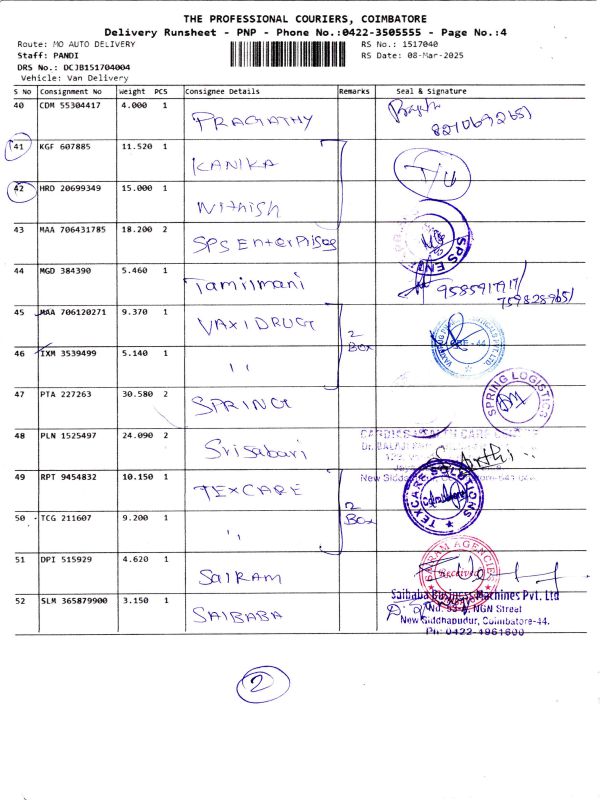 THE PROFESSIONAL COURIERS, COIMBATORE
Delivery Runsheet - PNP - Phone No.:0422-3505555 - Page No.:4
Route: MO AUTO DELIVERY
RS No.: 1517040
Staff: PANDI
RS Date: 08-Mar-2025
DRS No.: DCJB151704004
Vehicle: Van Delivery
S No Consignment No Weight PCS Consignee Details Remarks Seal & Signature
40 CDM 55304417 4.000 1 PRAGATHY
8210692651
41 KGF 607885 11.520 1 KANIKA
42 HRD 20699349 15.000 1 Nithish
43 MAA 706431785 18.200 2 SPS Enterprises
SPS EN
44 MGD 384390 5.460 1 Tamilmani
9585917917
7598289651
45 MAA 706120271 9.370 1 VAXIDRUG
2 Box
46 IXM 3539499 5.140 1 ''
47 PTA 227263 30.580 2 SPRING
SPRING LOGISTICS
48 PLN 1525497 24.090 2 Srisabari
New Siddha
49 RPT 9454832 10.150 1 TEXCARE
TEXCARE SOLUTIONS
Coimbatore
2 Box
50 TCG 211607 9.200 1 ''
51 DPI 515929 4.620 1 SAIRAM
SAIRAM AGENCIES
Received
52 SLM 365879900 3.150 1 SAIBABA
Saibaba Business Machines Pvt. Ltd
NGN Street
New Siddhapudur, Coimbatore-44.
Ph: 0422-4961600
2